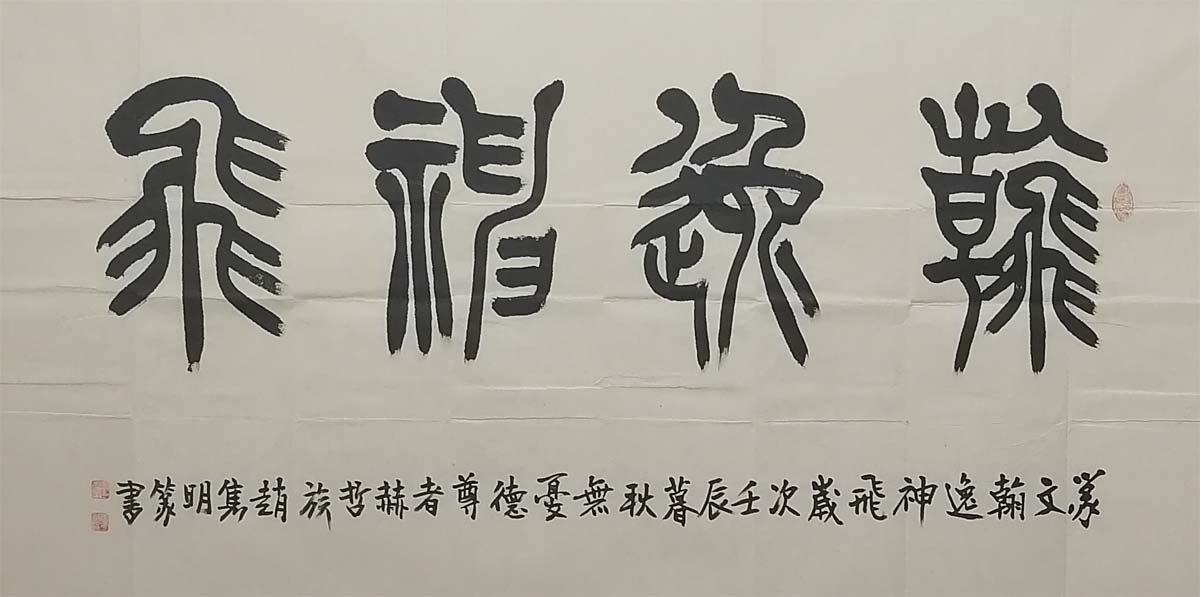 翰逸神飛
篆文翰逸神飛歲次壬辰暮秋無憂德尊者赫哲族趙隽明篆書